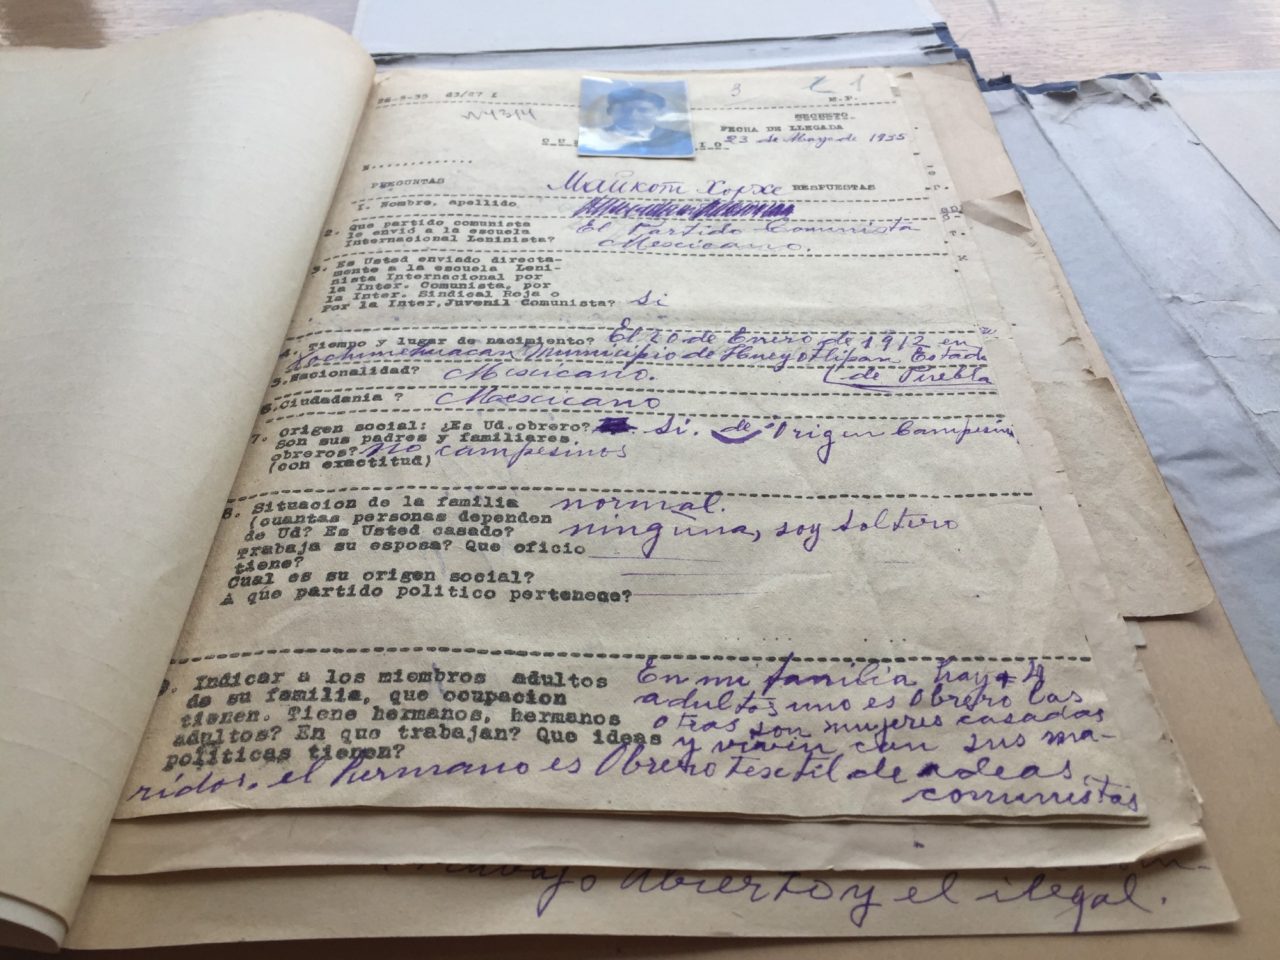 26-3-35 43/27 I
3
1
M.P.
N4314
SECRETO
FECHA DE LLEGADA
23 de Mayo de 1935
N.............
PREGUNTAS
Майкот Хорхе
RESPUESTAS
1. Nombre, apellido
2. que partido comunista
le envió a la escuela
Internacional Leninista?
El Partido Comunista
Mexicano.
3. Es Usted enviado directa-
mente a la escuela Leni-
nista Internacional por
la Inter. Comunista, por
la Inter. Sindical Roja o
Por la Inter.Juvenil Comunista? Si
4. Tiempo y lugar de nacimiento? El 20 de Enrero de 1912 en
Xochimehuacan Municipio de Hueyotlipan Estado
de Puebla
5. Nacionalidad? Mexicano.
6. Ciudadania ? Mexicano
7. Origen social: ¿Es Ud.obrero? Si. de Origen Campesino
Son sus padres y familiares
obreros? no campesinos
(con exactitud)
8. Situacion de la familia normal.
(cuantas personas dependen
de Ud? Es Usted casado? ninguna, soy soltero
Trabaja su esposa? Que oficio
tiene?
Cual es su origen social?
A que partido politico pertenece?
9. Indicar a los miembros adultos
de su familia, que ocupacion
tienen. Tiene hermanos, hermanos
adultos? En que trabajan? Que ideas
politicas tienen?
En mi familia hay 4
adultos uno es Obrero las
otras son mujeres casadas
y viven con sus ma-
ridos, el hermano es Obrero textil de adeas
comunistas
abierto y el ilegal.